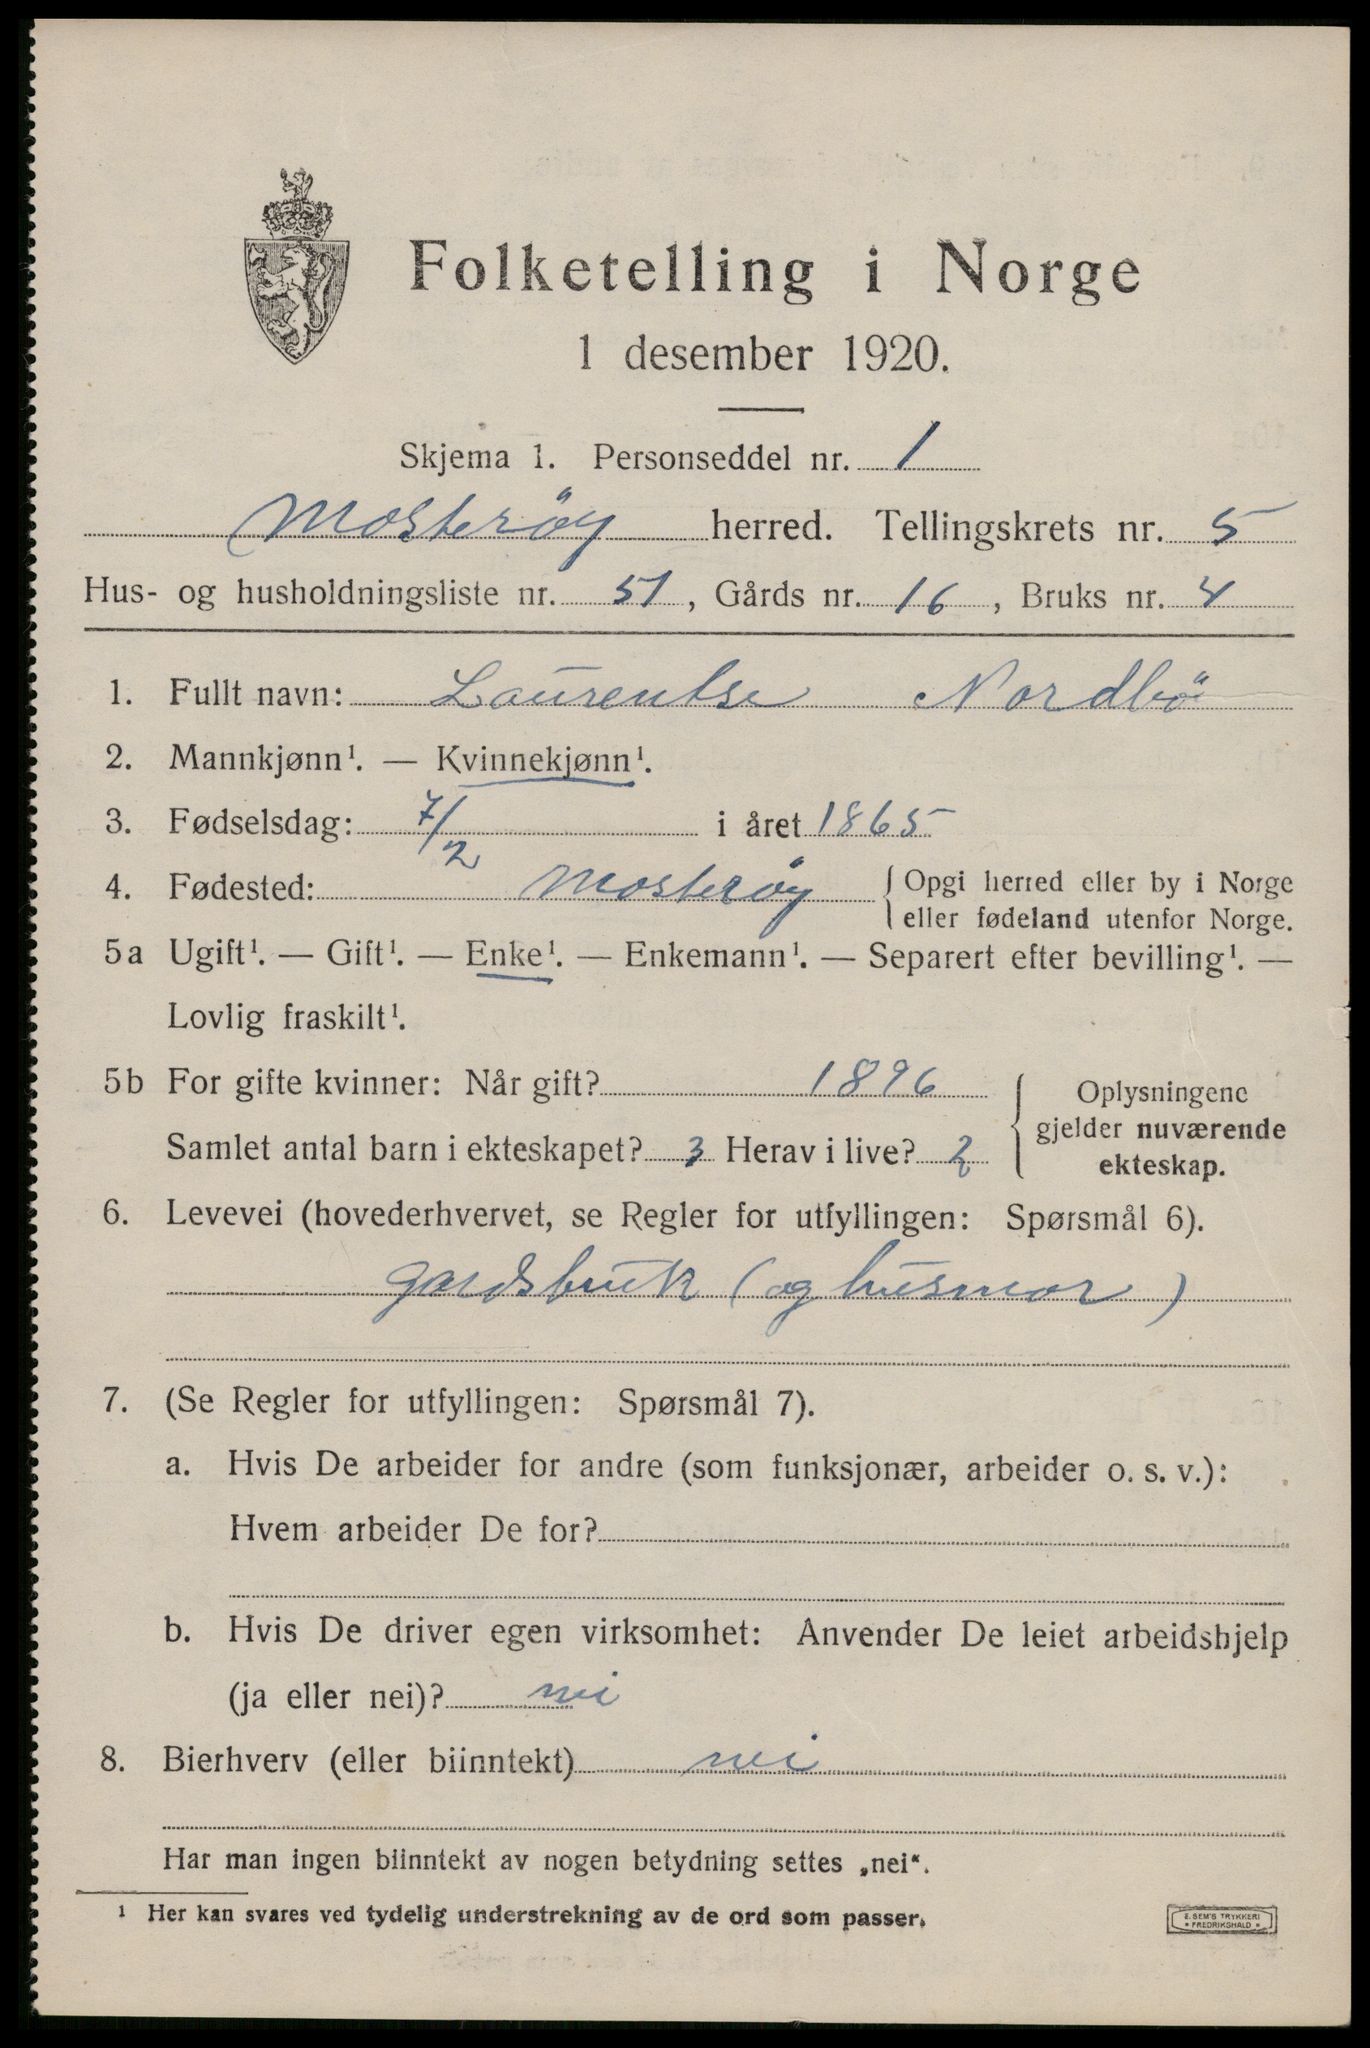 Folketelling i Norge
1 desember 1920.
Skjema 1. Personseddel nr. 1
Mosterøy herred. Tellingskrets nr. 5
Hus- og husholdningsliste nr. 51, Gårds nr. 16, Bruks nr. 4
1. Fullt navn: Laurentse Nordbö
2. Mannkjønn¹. — Kvinnekjønn¹.
3. Fødselsdag: 7/2 i året 1865
4. Fødested: Mosterøy { Opgi herred eller by i Norge
eller fødeland utenfor Norge.
5a Ugift¹. — Gift¹. — Enke¹. — Enkemann¹. — Separert efter bevilling¹. —
Lovlig fraskilt¹.
5b For gifte kvinner: Når gift? 1896
Samlet antal barn i ekteskapet? 3 Herav i live? 2
{ Oplysningene
gjelder nuværende
ekteskap.
6. Levevei (hovederhvervet, se Regler for utfyllingen: Spørsmål 6).
gardsbruk (og husmor)
7. (Se Regler for utfyllingen: Spørsmål 7).
a. Hvis De arbeider for andre (som funksjonær, arbeider o. s. v.):
Hvem arbeider De for?
b. Hvis De driver egen virksomhet: Anvender De leiet arbeidshjelp
(ja eller nei)? nei
8. Bierhverv (eller biinntekt) nei
Har man ingen biinntekt av nogen betydning settes „nei“.
¹ Her kan svares ved tydelig understrekning av de ord som passer.
E. SEM'S TRYKKERI
* FREDRIKSHALD *